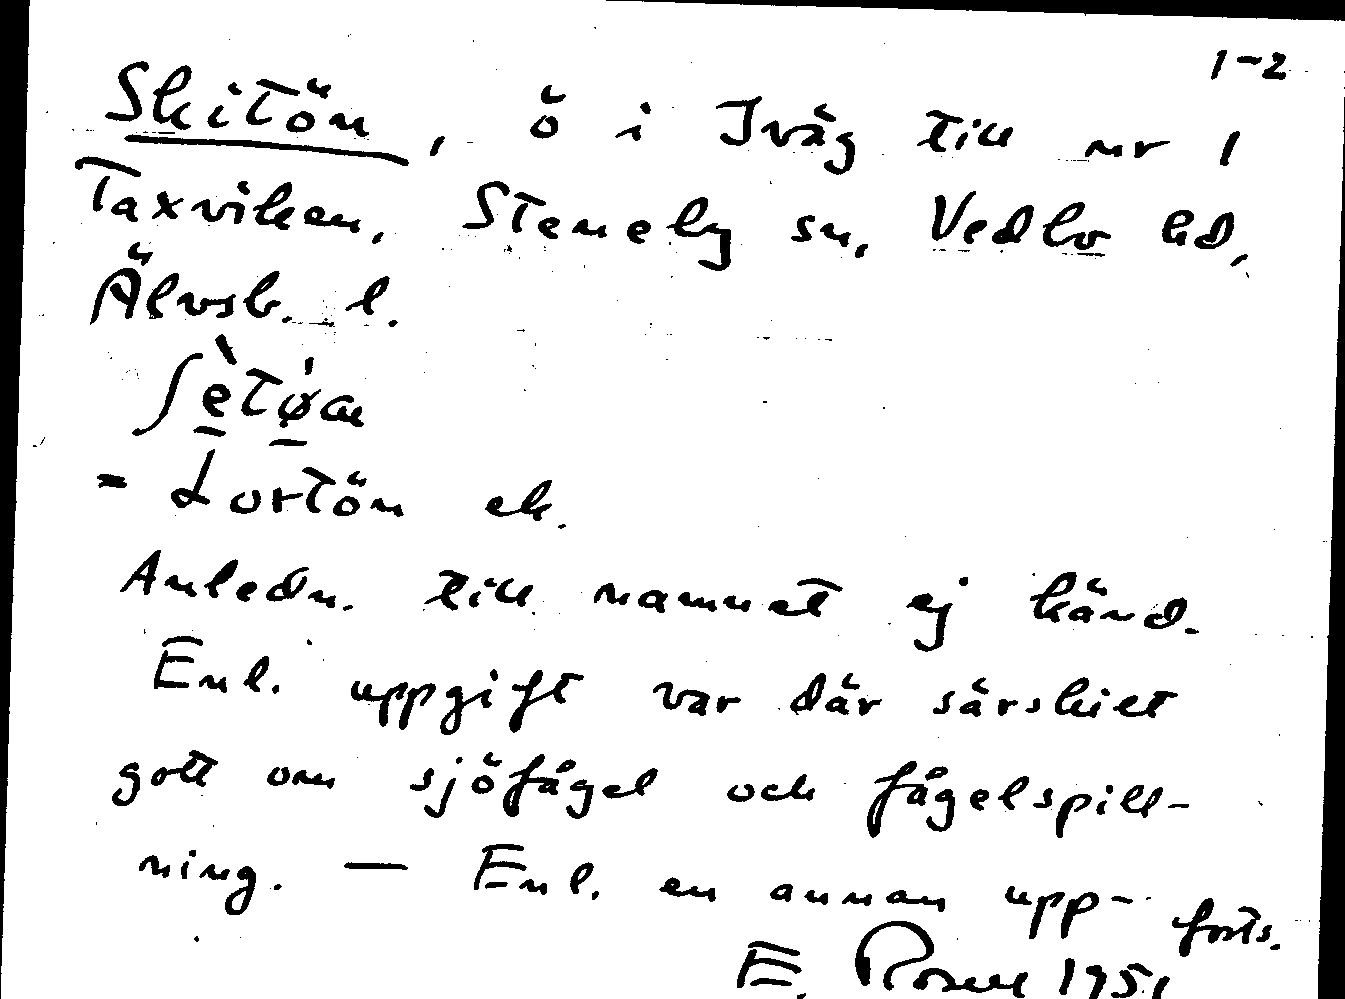 1-2
Skitön, ö i Iväg till nr 1
Taxviken, Steneby sn, Vedbo hd,
Älvsb. l.
ʃè̠tǿ̠n
= Lortön ek.
Anledn. till namnet ej känd.
Enl. uppgift var där särskilt
gott om sjöfågel och fågelspill-
ning. — Enl. en annan upp- forts.
E. 1951